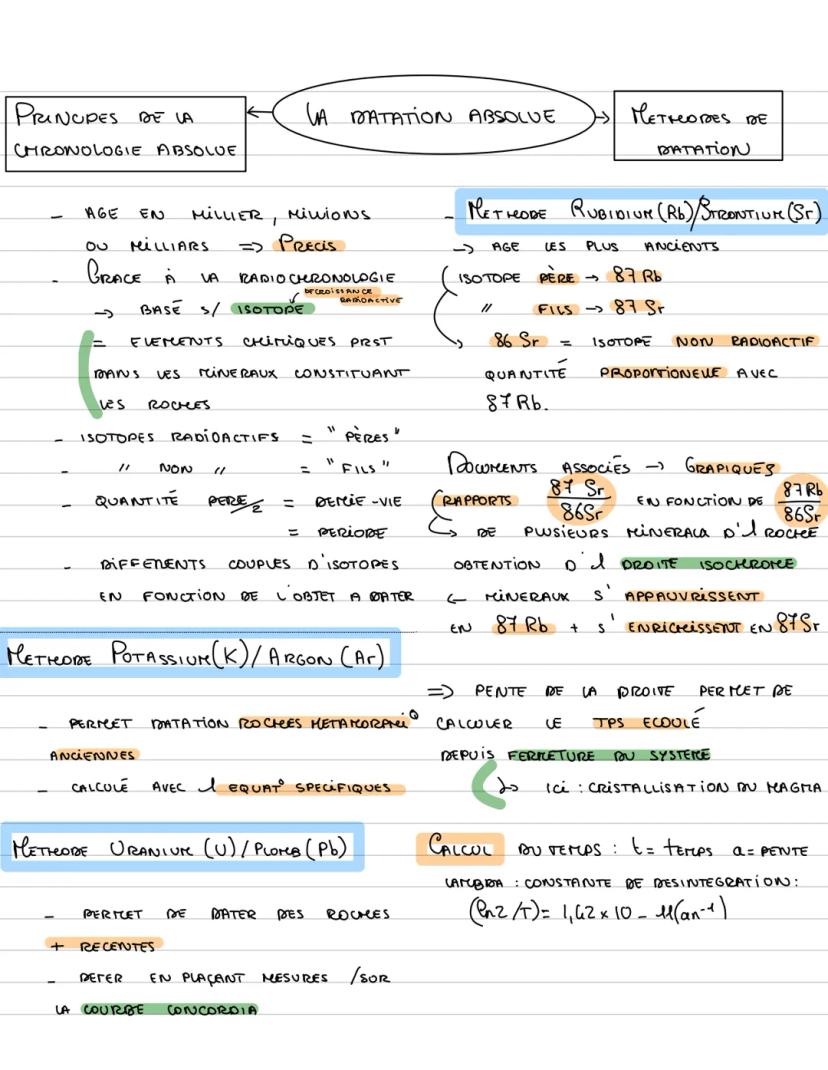 LA DATATION ABSOLUE
PRINCIPES DE LA
CHRONOLOGIE ABSOLUE
- AGE EN MILLIER, MILLIONS
OU MILLIARS => PRECIS
- GRACE À LA RADIOCHRONOLOGIE
DECROISSANCE
RADIOACTIVE
-> BASÉ S/ ISOTOPE
= ELEMENTS CHIMIQUES PRST
DANS LES MINERAUX CONSTITUANT
LES ROCHES
- ISOTOPES RADIOACTIFS = "PÈRES"
- " NON " = "FILS"
- QUANTITÉ PERE/2 = DEMIE-VIE
= PERIODE
- DIFFERENTS COUPLES D'ISOTOPES
EN FONCTION DE L'OBJET A DATER
METHODE POTASSIUM(K)/ARGON(Ar)
- PERMET DATATION ROCHES METAMORPHI°
ANCIENNES
- CALCULÉ AVEC 1 EQUAT° SPECIFIQUES
METHODE URANIUM (U)/PLOMB(Pb)
- PERMET DE DATER DES ROCHES
+ RECENTES
- DETER EN PLAÇANT MESURES /SUR
LA COURBE CONCORDIA
METHODES DE
DATATION
- METHODE RUBIDIUM(Rb)/STRONTIUM(Sr)
-> AGE LES PLUS ANCIENTS
ISOTOPE PÈRE -> 87 Rb
" FILS -> 87 Sr
86 Sr = ISOTOPE NON RADIOACTIF
QUANTITÉ PROPORTIONELLE AVEC
87 Rb.
DOCUMENTS ASSOCIÉS -> GRAPIQUES
RAPPORTS 87 Sr/86Sr EN FONCTION DE 87Rb/86Sr
DE PLUSIEURS MINERAUX D'1 ROCHE
OBTENTION D'1 DROITE ISOCHRONE
<- MINERAUX S'APPAUVRISSENT
EN 87 Rb + S'ENRICHISSENT EN 87Sr
=> PENTE DE LA DROITE PERMET DE
CALCULER LE TPS ECOULÉ
DEPUIS FERMETURE DU SYSTEME
-> ICI : CRISTALLISATION DU MAGMA
CALCUL DU TEMPS : t= TEMPS a= PENTE
LAMBDA : CONSTANTE DE DESINTEGRATION :
(ln2/T)= 1,42 x 10 - 11(an⁻¹)